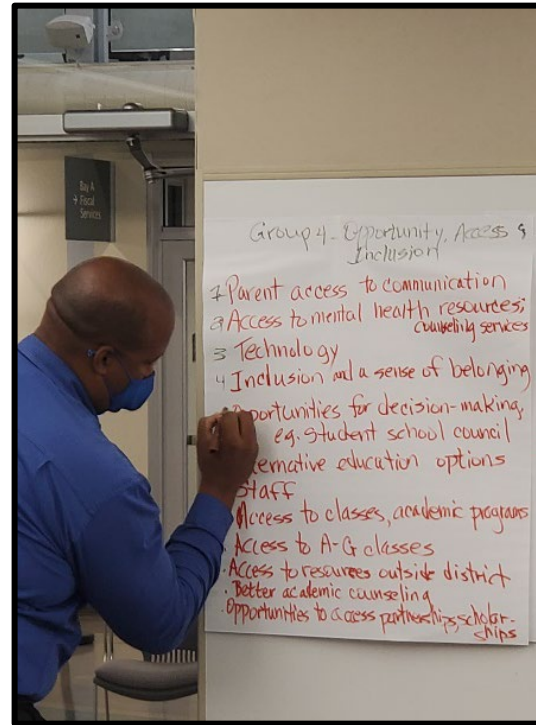 Bay A
→ Fiscal
Services
Group 4 - Opportunity, Access &
Inclusion
1 Parent access to communication
2 Access to mental health resources;
counseling services
3 Technology
4 Inclusion and a sense of belonging
for decision-making,
eg. student school council
education options
Staff
Access to classes, academic programs
. Access to A-G classes
. Access to resources outside district
. Better academic counseling
. Opportunities to access partnerships, scholar-
ships